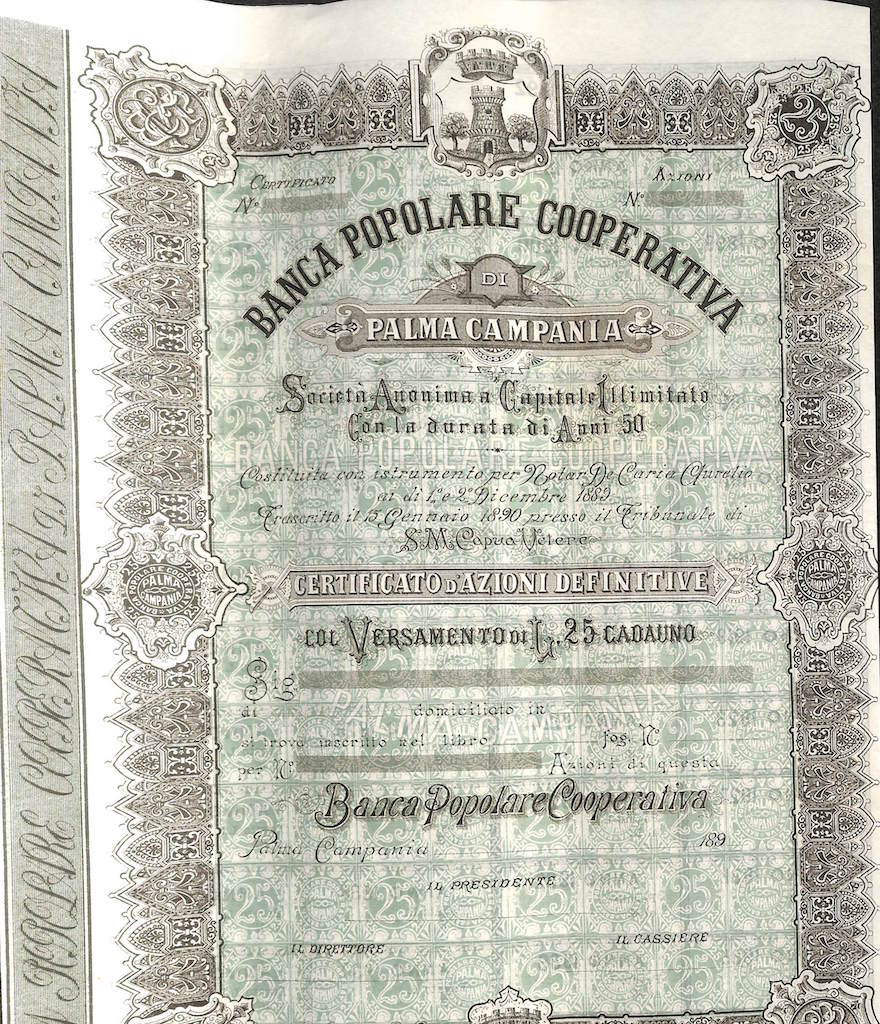 CERTIFICATO
N°
AZIONI
N°
BANCA POPOLARE COOPERATIVA
DI
PALMA CAMPANIA
Società Anonima a Capitale Illimitato
Con la durata di Anni 50
BANCA POPOLARE COOPERATIVA
Costituita con istrumento per Notar De Caria Aurelio
ai dì 1° e 2° Dicembre 1889
Trascritto il 15 Gennaio 1890 presso il Tribunale di
S. M. Capua Vetere
CERTIFICATO D'AZIONI DEFINITIVE
COL VERSAMENTO DI L. 25 CADAUNO
Sig
di domiciliato in
PALMA CAMPANIA
si trova inscritto nel libro fog. N°
per N° Azioni di questa
Banca Popolare Cooperativa
Palma Campania 189
IL PRESIDENTE
IL DIRETTORE
IL CASSIERE
BANCA POPOLARE COOPERATIVA
PALMA
CAMPANIA
25